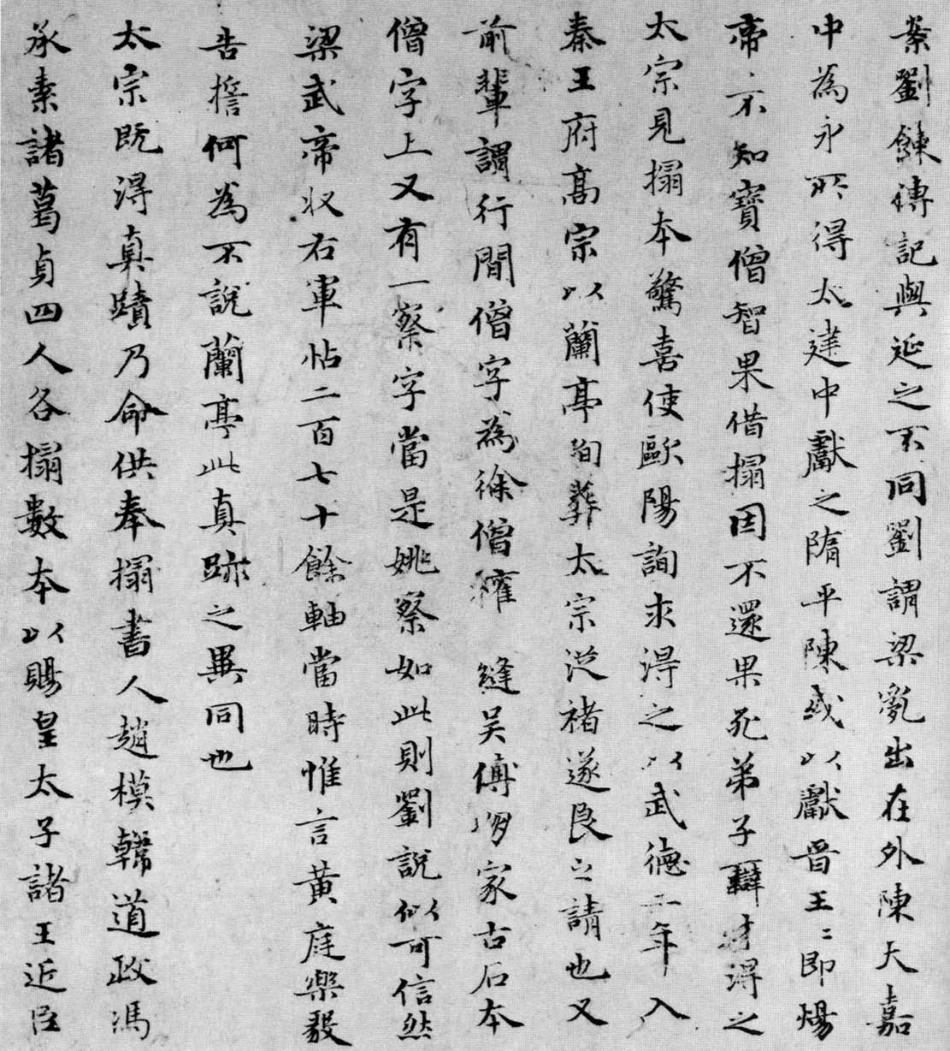 案劉餗傳記與延之不同劉謂梁亂出在外陳天嘉
中為永所得太建中獻之隋平陳或以獻晉王〻即煬
帝不知寶僧智果借搨因不還果死弟子辯才得之
太宗見搨本驚喜使歐陽詢求得之以武德二年入
秦王府高宗以蘭亭殉葬太宗從褚遂良之請也又
前輩謂行間僧字為徐僧權 縫吳傅朋家古石本
僧字上又有一察字當是姚察如此則劉說似可信然
梁武帝收右軍帖二百七十餘軸當時惟言黃庭樂毅
告誓何為不說蘭亭此真跡之異同也
太宗既得真蹟乃命供奉搨書人趙模韓道政馮
承素諸葛貞四人各搨數本以賜皇太子諸王近臣